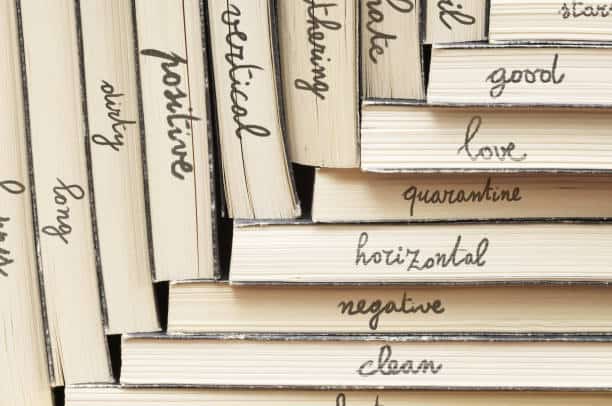 long
dirty
positive
vertical
thering
hate
il
star
good
love
quarantine
horizontal
negative
clean